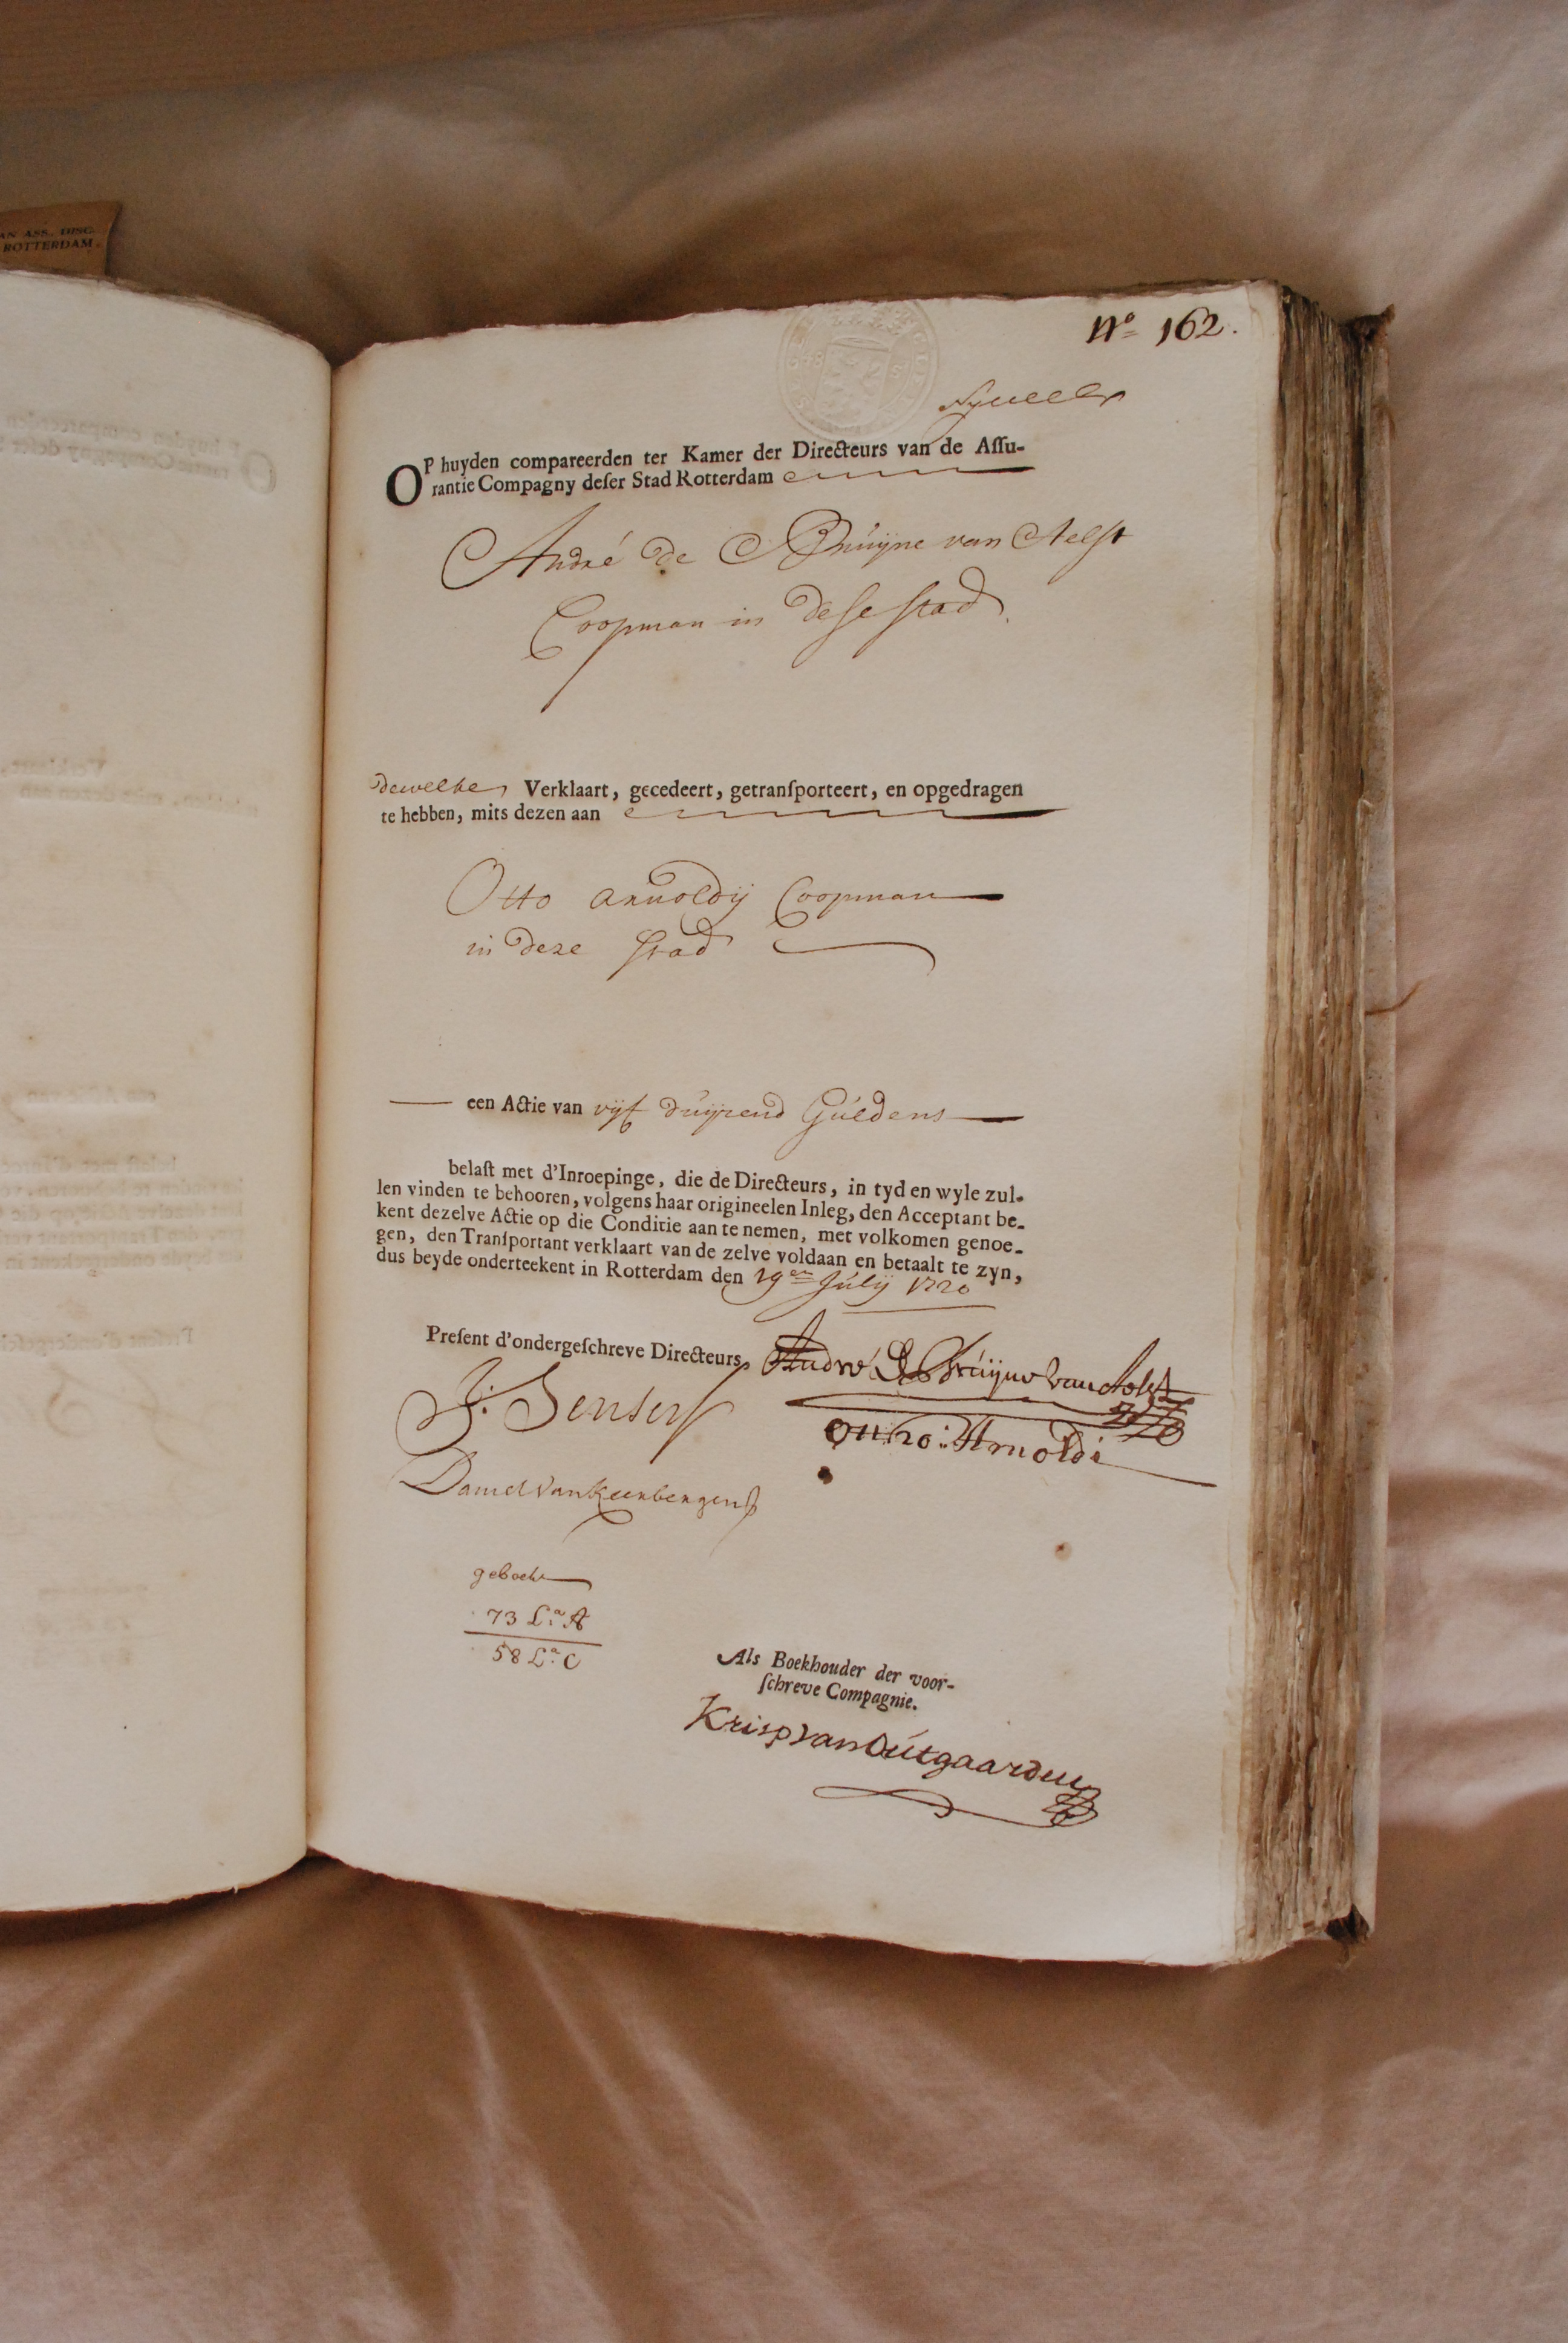 AN ASS. DISC.
ROTTERDAM.
No 162.
OP huyden compareerden ter Kamer der Directeurs van de Aſſu-
rantie Compagny deſer Stad Rotterdam
André de Bruijne van Aelst
Coopman in dese stad
dewelke Verklaart, gecedeert, getranſporteert, en opgedragen
te hebben, mits dezen aan
Otto Arnoldij Coopman
in deze Stad
een Actie van vijf duijzend Guldens
belaſt met d'Inroepinge, die de Directeurs, in tyd en wyle zul-
len vinden te behooren, volgens haar origineelen Inleg, den Acceptant be-
kent dezelve Actie op die Conditie aan te nemen, met volkomen genoe-
gen, den Tranſportant verklaart van de zelve voldaan en betaalt te zyn,
dus beyde onderteekent in Rotterdam den 19en Julij 1720
Preſent d'ondergeſchreve Directeurs, André De Bruijne van Aelst
Arnoldi
Daniel van
geboekt
73 La A
58 La C
Als Boekhouder der voor-
ſchreve Compagnie.
Krisp van Outgaarden